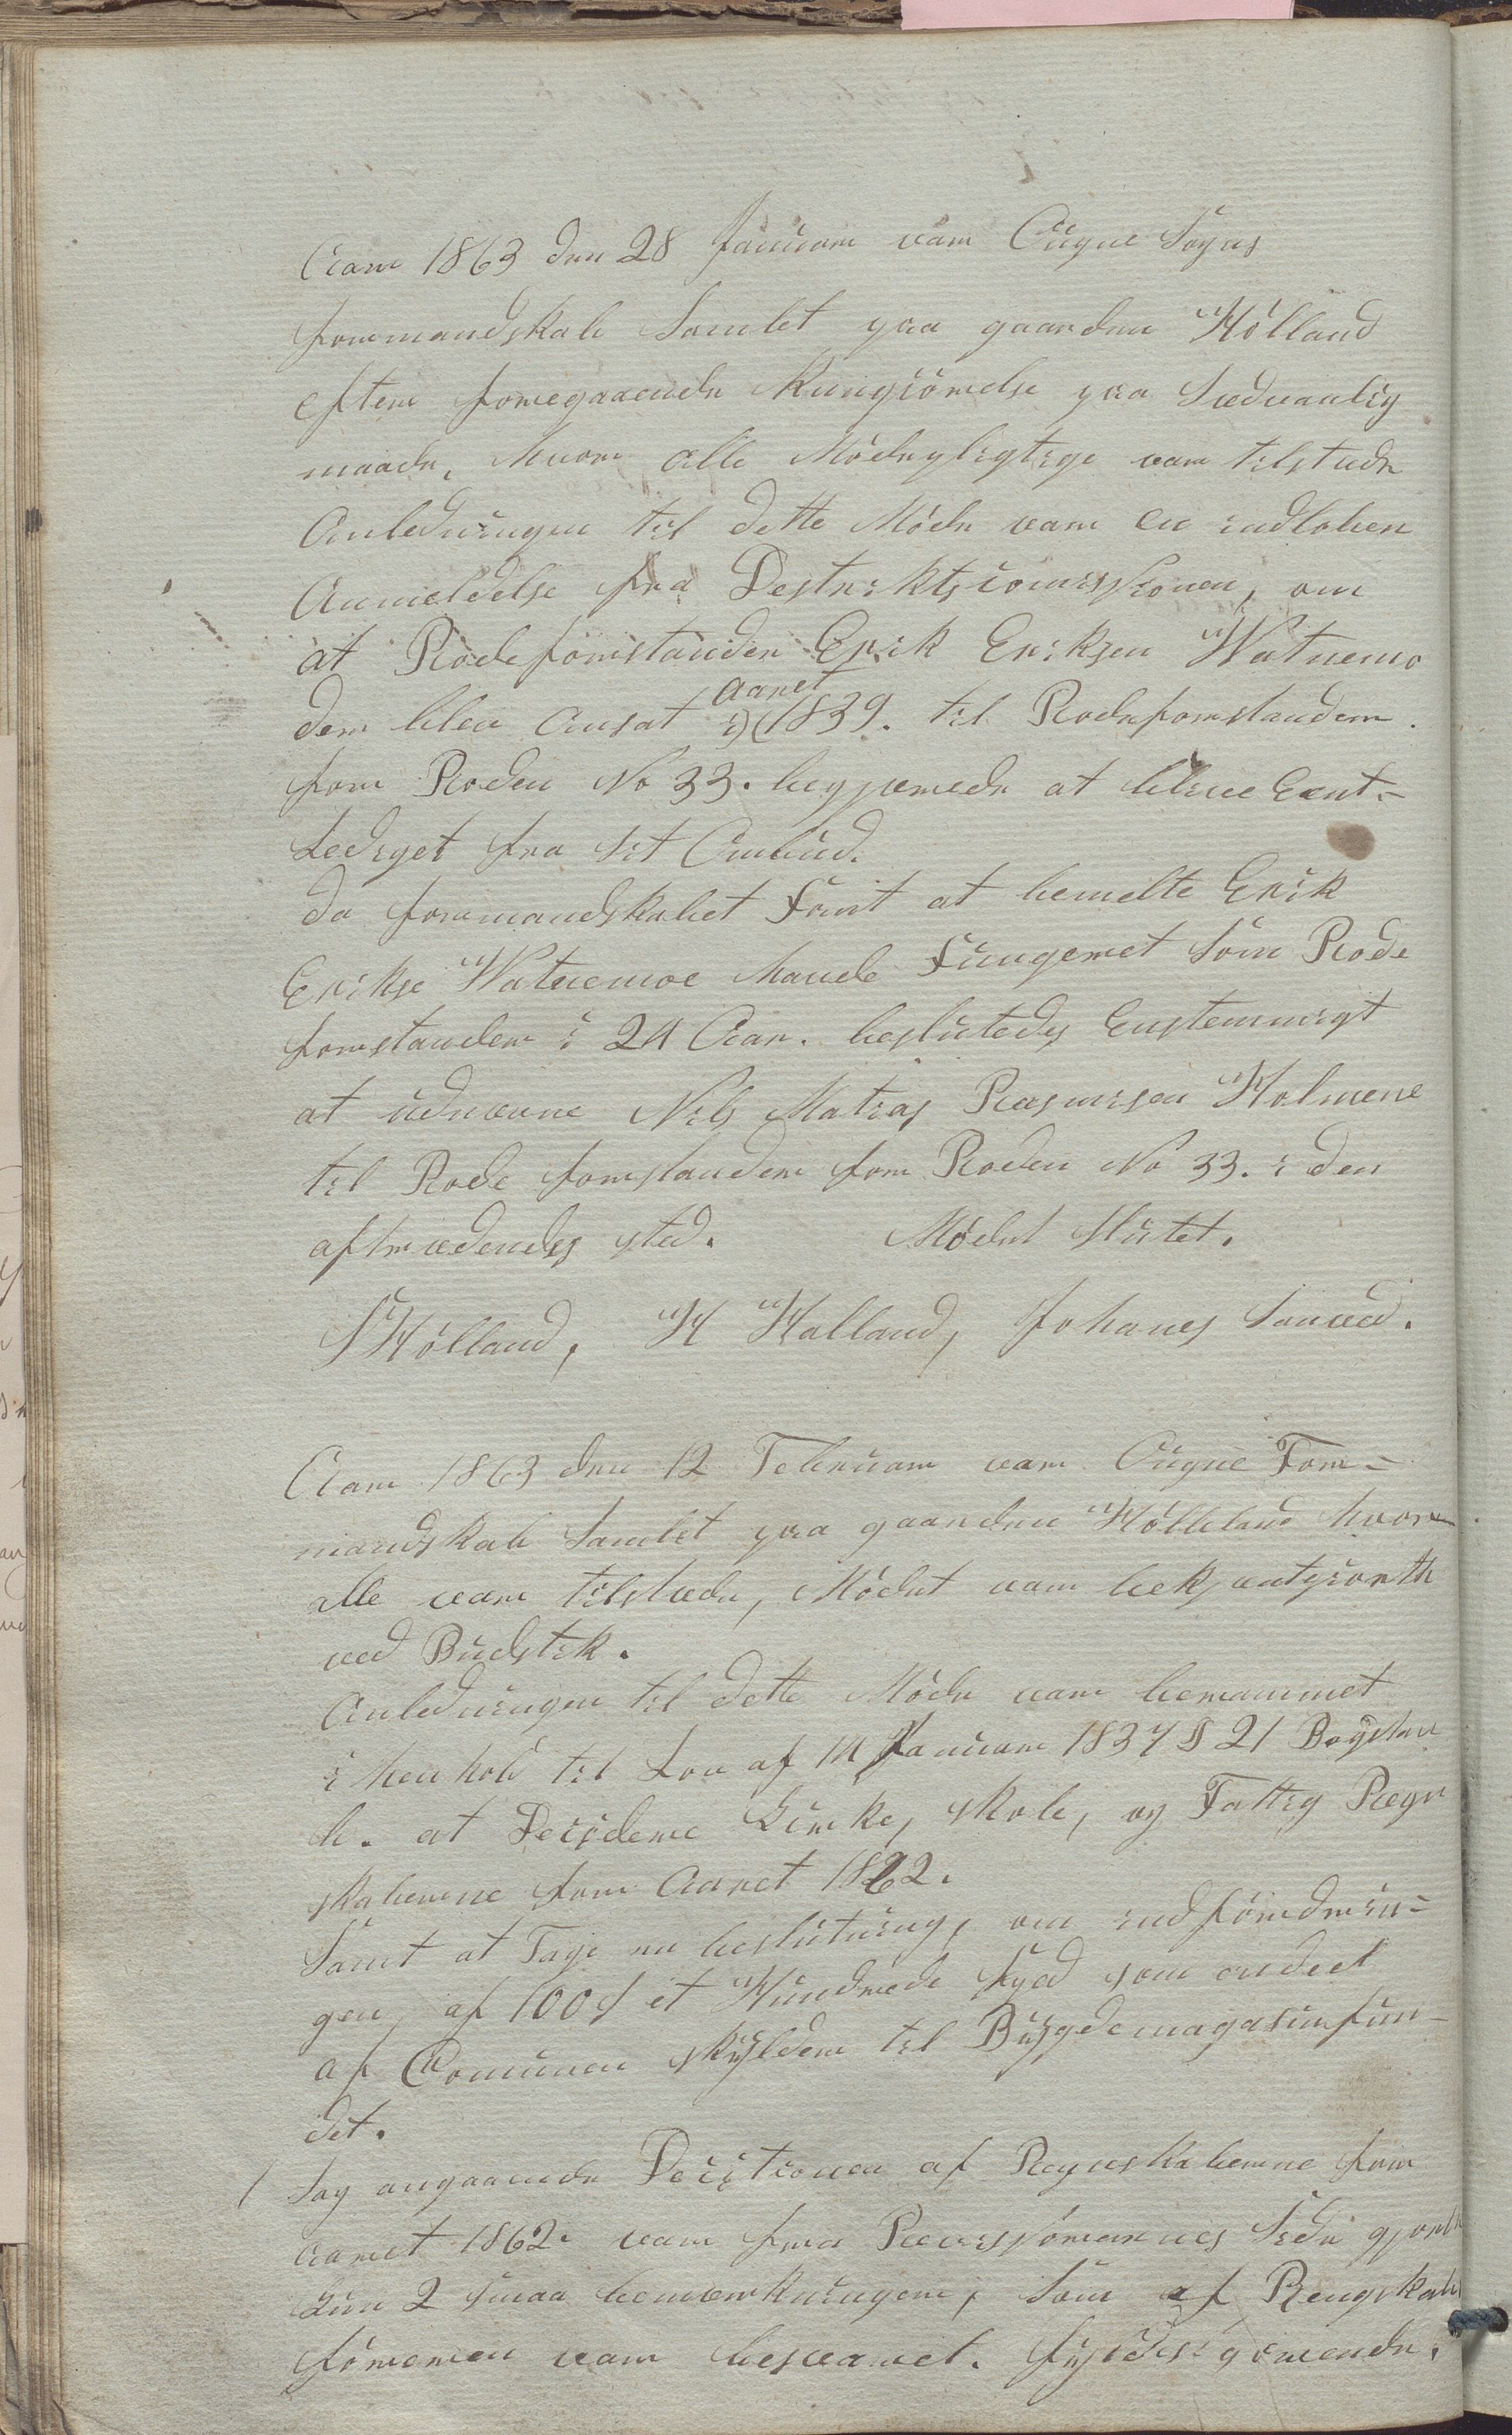 Aar 1863 den 28 Januar var Ougne Sogns
formandskab Samlet paa gaarden Hölland
efter foregaaende Kungiörelse paa Sædvanlig
maade, hvor alle Mödepligtige var tilstede
Anledningen til dette Möde var en indloben
Anmeldelse fra Destriktscomissionen, om
at Rodeforstander Erik Eriksen Watnemo
der blev Ansat i aaret 1839. til Rodeforstander
for Roden No 33. begjærede at blive Ent-
Lediget fra sit Ombud.
da formandskabet Fant at bemelte Erik
Erikse Watnemoe havde Fungeret som Rode
forstander i 24 Aar. besluteds Enstemmigt
at udnævne Nils Matias Rasmusen Holmene
til Rode forstander for Roden No 33. i den
aftrædendes sted. Mödet Slutet.
S Hölland, H Halland, Johanes Sanved.
Aar 1863 den 12 Februar var Ougne For-
mandskab Samlet paa gaarden Hölleland hvor
alle var tilstede, Mödet var bekjentgiorth
ved Budstik.
Anledningen til dette Möde var berammet
i henhold til Lov af 14 Januar 1837 § 21 Bogstav
b. at Desidere Kirke, skole, og Fattig Regn
skaberne for Aaret 1862.
Samt at Tage en beslutning, om indfordrin-
gen af 100 S et Hundrede Spd som endeel
af Comunen skylder til Bygdemagasinfun-
det.
1 Sag angaaende Desitionen af Regnskaberne for
aaret 1862. var fra Revisjorernes Side gjorth
Kun 2 smaa bemerkninger, som af Rengskab
föreren var besvaret. fyldistgörende.